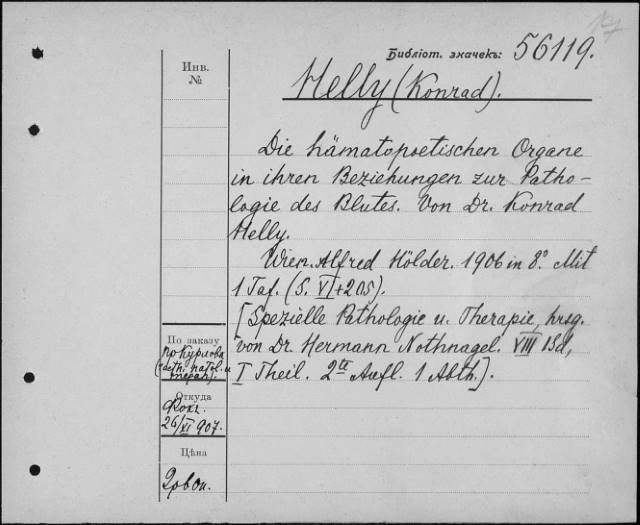 Библіот. значекъ: 56119.
Инв. №
Helly (Konrad).
Die hämatopoetischen Organe
in ihren Beziehungen zur Patho-
logie des Blutes. Von Dr. Konrad
Helly.
Wien. Alfred Hölder. 1906 in 8°. Mit
1 Taf. (S. VI + 205).
[Spezielle Pathologie u. Therapie, hrsg.
von Dr. Hermann Nothnagel. VIII Bd,
I Theil. 2te Aufl. 1 Abth.].
По заказу
Откуда
26/XI 907.
Цѣна